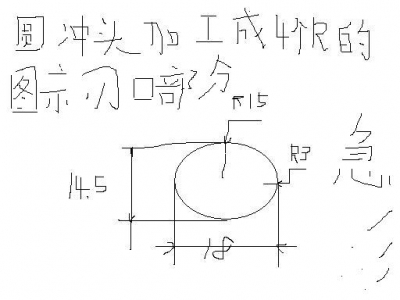 圆冲头加工成4个R的
图示刃口部分
R15
R3
急
14.5
18